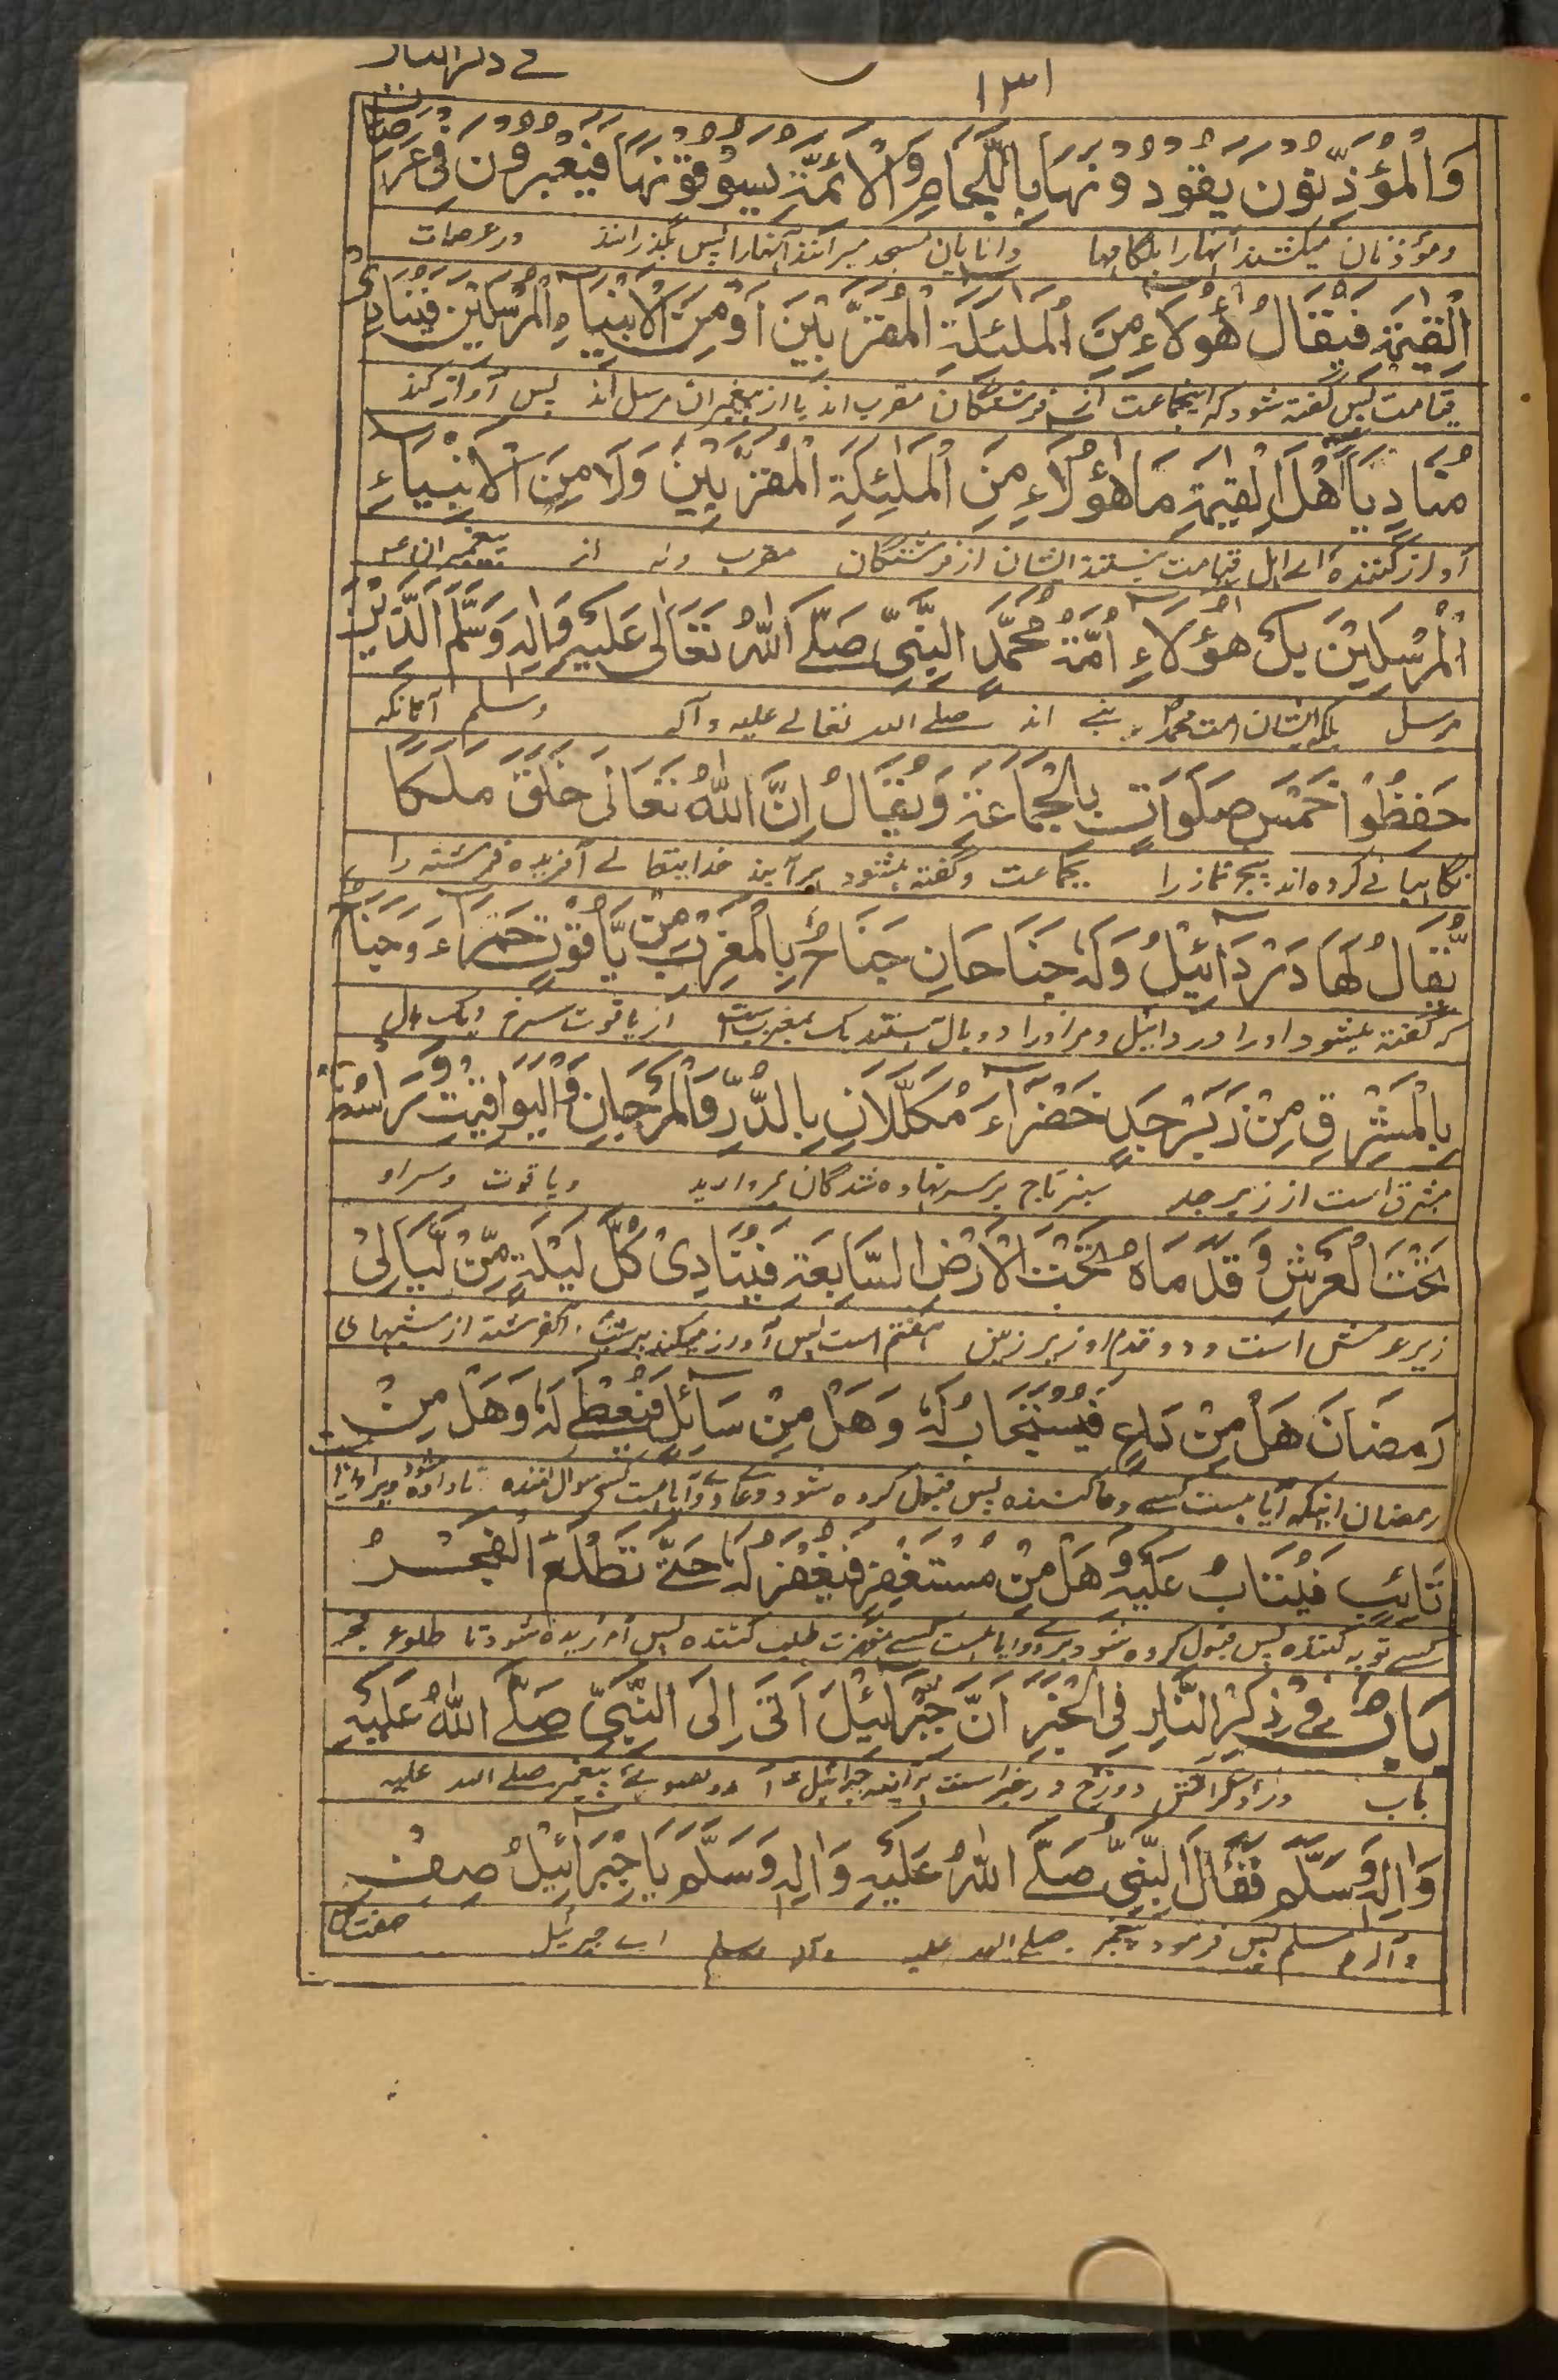 ١٣١
وَالْمُؤَذِّنُونَ يَقُودُونَهَا بِاللِّجَامِ وَالْاَئِمَّةُ يَسُوقُونَهَا فَيَعْبُرُونَ فِى عَرَصَاتِ
ومؤذنان میکشند آنهارا بلگامها وامامان مسجد میرانند آنهارا پس بگذرانند درعرصات
الْقِيٰمَةِ فَيُقَالُ هٰؤُلَاءِ مِنَ الْمَلٰئِكَةِ الْمُقَرَّبِيْنَ اَوْ مِنَ الْاَنْبِيَاءِ الْمُرْسَلِيْنَ فَيُنَادِىْ
قیامت پس گفته شود که اینجماعت از فرشتگان مقرب اند یا از پیغمبران مرسل اند پس آواز کند
مُنَادٍ يَا اَهْلَ الْقِيٰمَةِ مَا هٰؤُلَاءِ مِنَ الْمَلٰئِكَةِ الْمُقَرَّبِيْنَ وَلَا مِنَ الْاَنْبِيَاءِ
آواز کننده اے اہل قیامت نیستند ایشان از فرشتگان مقرب ونه از پیغمبران
الْمُرْسَلِيْنَ بَلْ هٰؤُلَاءِ اُمَّةُ مُحَمَّدٍ النَّبِىِّ صَلَّے اللهُ تَعَالٰى عَلَيْهِ وَاٰلِهٖ وَسَلَّمَ الَّذِيْنَ
مرسل بلکه ایشان امت محمد نبے اند صلے الله تعالے علیه وآله وسلم آنانکه
حَفِظُوْا خَمْسَ صَلَوَاتٍ بِالْجَمَاعَةِ وَيُقَالُ اِنَّ اللهَ تَعَالٰى خَلَقَ مَلَكًا
نگاہبانے کرده اند پنج نماز را بجماعت وگفته میشود ہرآینه خدایتعالے آفریده فرشته را
يُّقَالُ لَهَا دَرْدَائِيْلُ وَلَهٗ جَنَاحَانِ جَنَاحٌ بِالْمَغْرِبِ مِنْ يَّاقُوْتٍ حَمْرَاءَ وَجَنَاحٌ
که گفته میشود اورا دردائیل ومر اورا دو بال ہستند یک بمغرب است از یاقوت سرخ ویک بال
بِالْمَشْرِقِ مِنْ زَبَرْجَدٍ خَضْرَاءَ مُكَلَّلَانِ بِالدُّرِّ وَالْمَرْجَانِ وَالْيَوَاقِيْتِ وَرَاْسُهٗ
مشرق است از زبرجد سبز تاج برسر نہاده شدگان مروارید ویاقوت وسر او
تَحْتَ الْعَرْشِ وَقَدَمَاهُ تَحْتَ الْاَرْضِ السَّابِعَةِ فَيُنَادِىْ كُلَّ لَيْلَةٍ مِّنْ لَّيَالِىْ
زیر عرش است ودو قدم او زیر زمین ہفتم است پس آواز میکند ہرشب آنفرشته از شبہای
رَمَضَانَ هَلْ مِنْ دَاعٍ فَيُسْتَجَابُ لَهٗ وَهَلْ مِنْ سَائِلٍ فَيُعْطٰے لَهٗ وَهَلْ مِنْ
رمضان اینکه آیا ہست کسے دعا کننده پس قبول کرده شود دعاے او وآیا ہست کسے سوال کننده تا داده شود
تَائِبٍ فَيُتَابُ عَلَيْهِ وَهَلْ مِنْ مُسْتَغْفِرٍ فَيُغْفَرُ لَهٗ حَتّٰے تَطْلُعَ الْفَجْرُ
کسے توبه کننده پس قبول کرده شود بروے وآیا ہست کسے مغفرت طلب کننده پس آمرزیده شود تا طلوع فجر
بَابٌ فِے ذِكْرِ النَّارِ فِى الْخَبَرِ اَنَّ جِبْرَائِيْلَ اَتٰى اِلَى النَّبِىِّ صَلَّے اللهُ عَلَيْهِ
باب در ذکر آتش دوزخ در خبر است ہرآینه جبرائیل آمد بسوئے پیغمبر صلے الله علیه
وَاٰلِهٖ وَسَلَّمَ فَقَالَ النَّبِىُّ صَلَّے اللهُ عَلَيْهِ وَاٰلِهٖ وَسَلَّمَ يَا جِبْرَائِيْلُ صِفْ
وآله وسلم پس فرمود پیغمبر صلے الله علیه وآله وسلم اے جبرئیل صفت کن